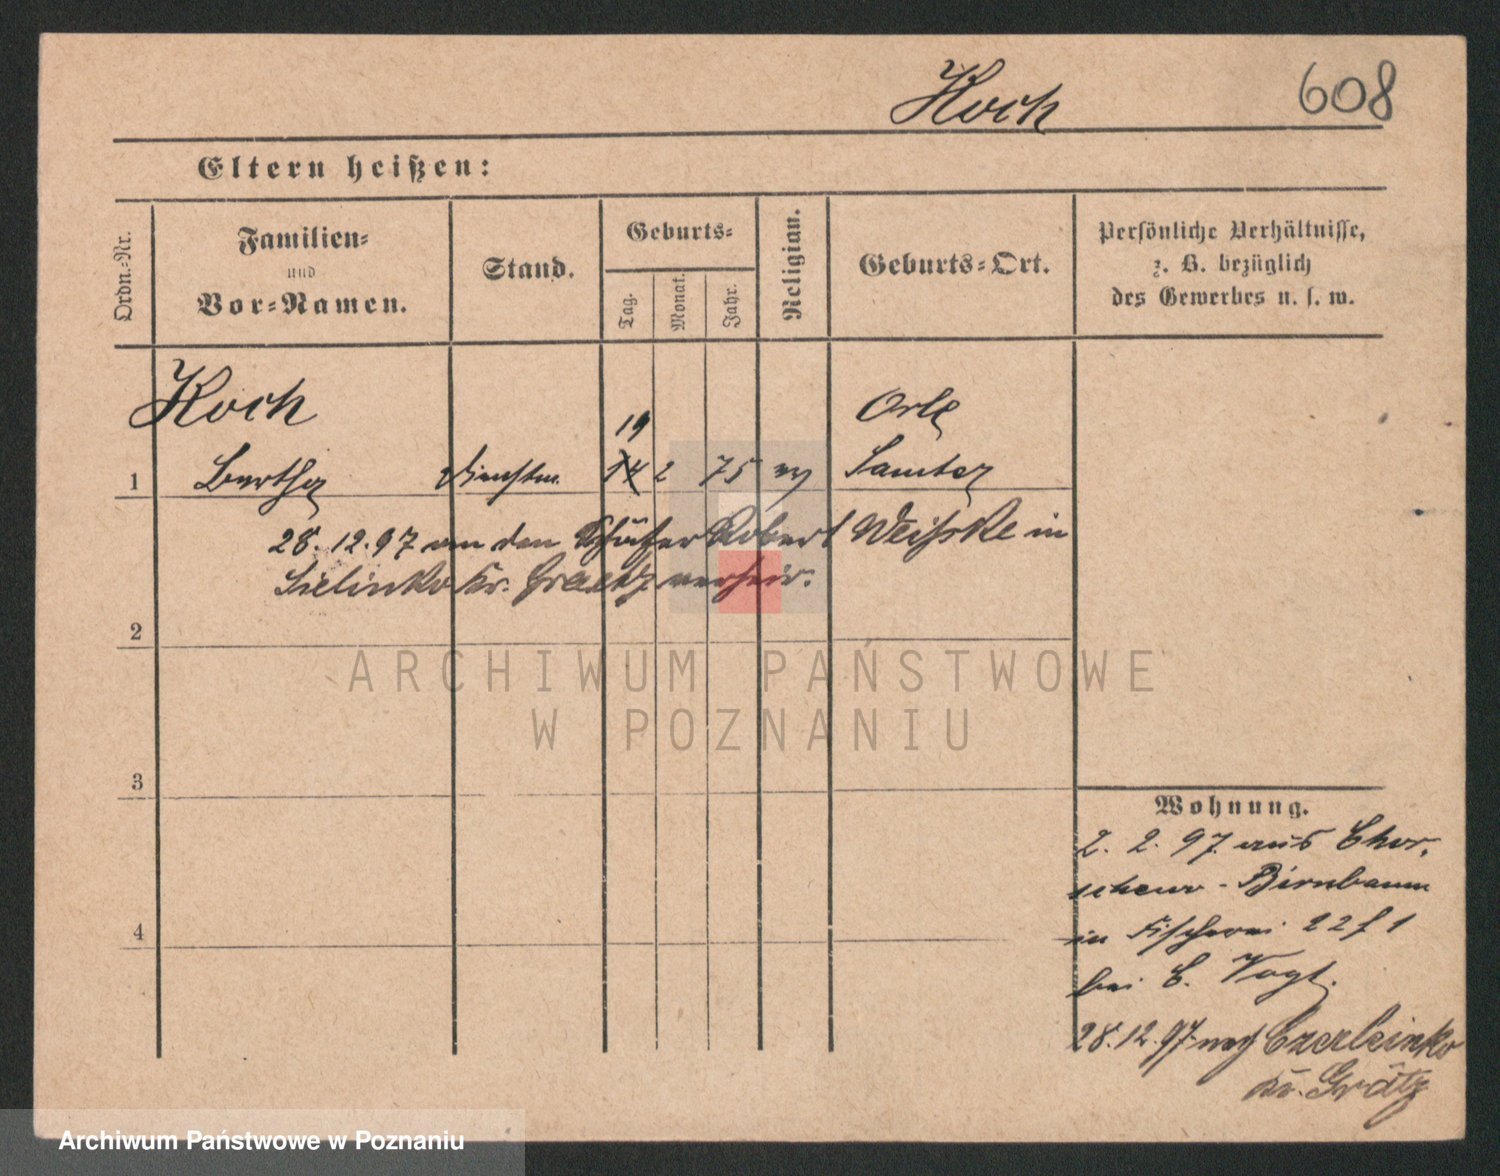 Koch
608
Eltern heißen:
Ordn.-Nr.
Familien-
und
Vor-Namen.
Stand.
Geburts-
Tag.
Monat.
Jahr.
Religian.
Geburts-Ort.
Persönliche Verhältnisse,
z. B. bezüglich
des Gewerbes u. s. w.
Koch
19
Orle
1 Bertha Dienstm. 14 2 75 ev Samter
28.12.97 an den Schäfer Robert Weißke in
Kr. Graetz verheir.
2
3
4
Wohnung.
2. 2. 97 aus Chor,
- Birnbaum
in Fischerei 22 f 1
bei C. Vogt.
28.12.97 nach
Kr. Grätz
ARCHIWUM PAŃSTWOWE
W POZNANIU
Archiwum Państwowe w Poznaniu